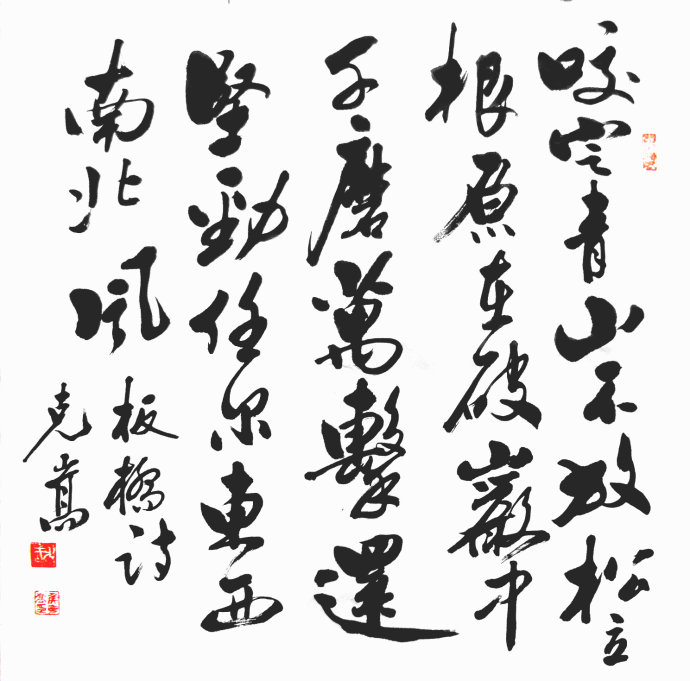 咬定青山不放松立
根原在破巖中
千磨萬擊還
堅勁任尔東西
南北風
板橋詩
克